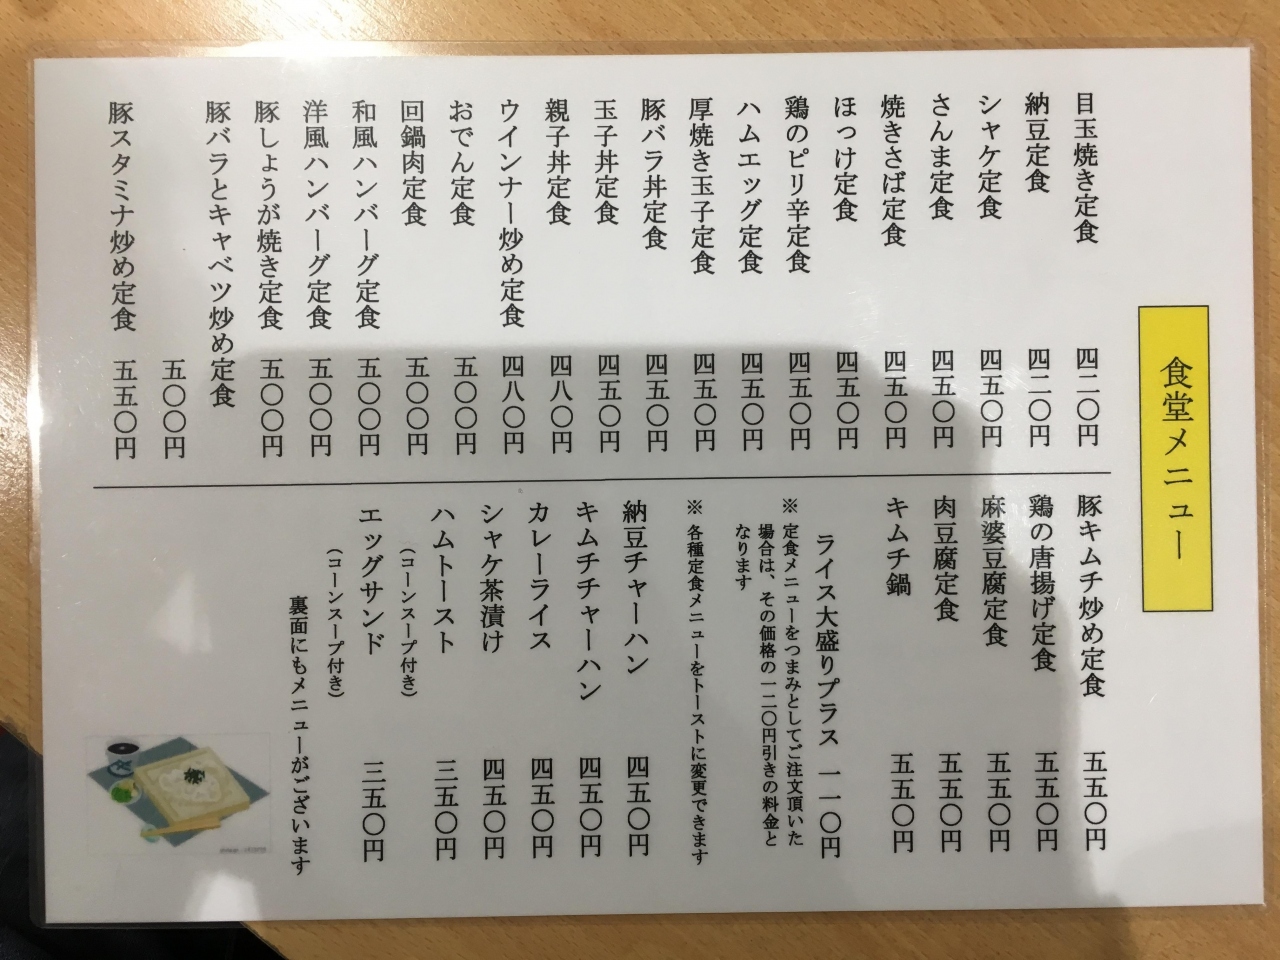 食堂メニュー
目玉焼き定食 四二〇円
納豆定食 四二〇円
シャケ定食 四五〇円
さんま定食 四五〇円
焼きさば定食 四五〇円
ほっけ定食 四五〇円
鶏のピリ辛定食 四五〇円
ハムエッグ定食 四五〇円
厚焼き玉子定食 四五〇円
豚バラ丼定食 四五〇円
玉子丼定食 四五〇円
親子丼定食 四八〇円
ウインナー炒め定食 四八〇円
おでん定食 五〇〇円
回鍋肉定食 五〇〇円
和風ハンバーグ定食 五〇〇円
洋風ハンバーグ定食 五〇〇円
豚しょうが焼き定食 五〇〇円
豚バラとキャベツ炒め定食
五〇〇円
豚スタミナ炒め定食 五五〇円
豚キムチ炒め定食 五五〇円
鶏の唐揚げ定食 五五〇円
麻婆豆腐定食 五五〇円
肉豆腐定食 五五〇円
キムチ鍋 五五〇円
ライス大盛りプラス 一一〇円
※ 定食メニューをつまみとしてご注文頂いた
場合は、その価格の一二〇円引きの料金と
なります
※ 各種定食メニューをトーストに変更できます
納豆チャーハン 四五〇円
キムチチャーハン 四五〇円
カレーライス 四五〇円
シャケ茶漬け 四五〇円
ハムトースト 三五〇円
（コーンスープ付き）
エッグサンド 三五〇円
（コーンスープ付き）
裏面にもメニューがございます